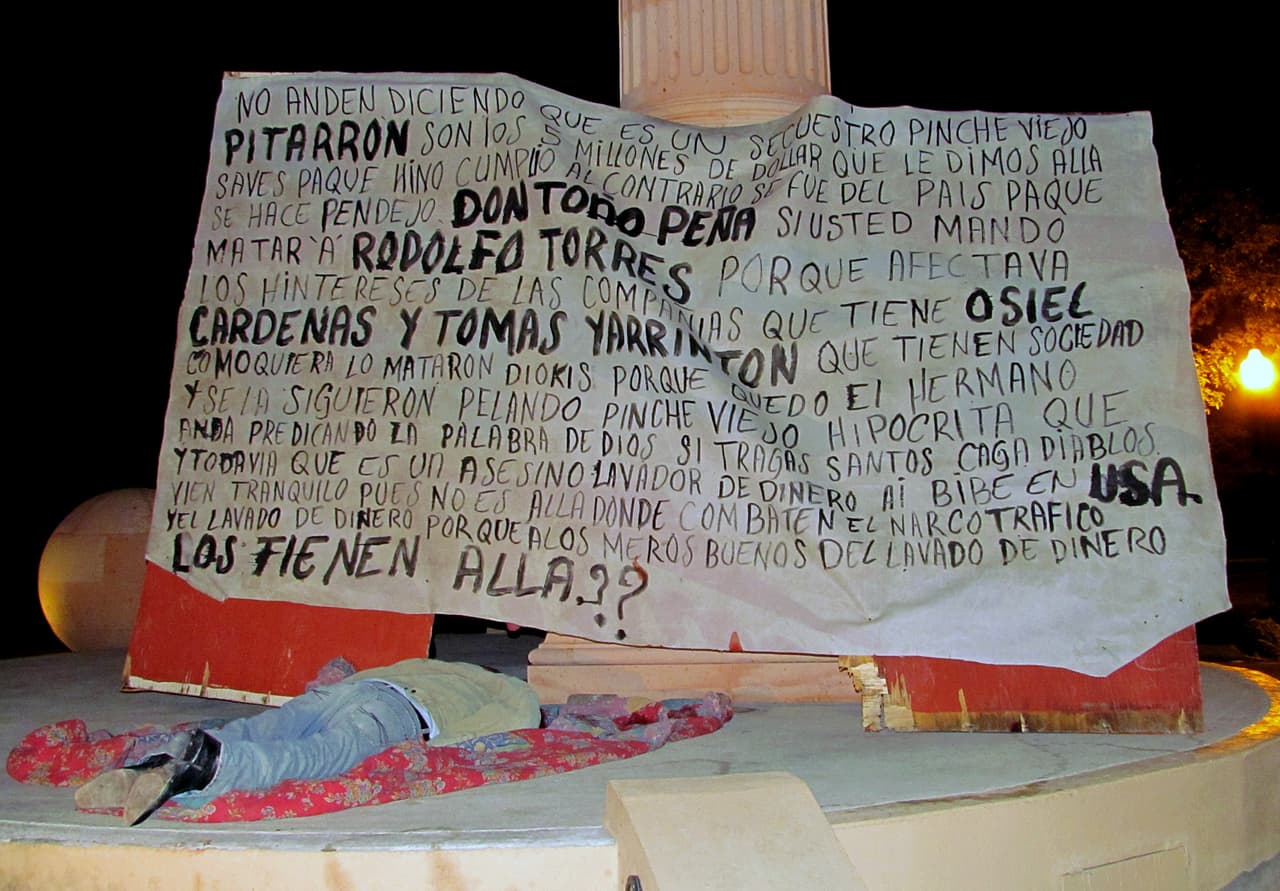 NO ANDEN DICIENDO QUE ES UN SECUESTRO PINCHE VIEJO
PITARRON SON lOS 5 MILLONES DE DOLLAR QUE LE DIMOS ALLA
SAVES PAQUE HINO CUMPLIO AL CONTRARIO SE FUE DEL PAIS PAQUE
SE HACE PENDEJO. DON TOÑO PEÑA SI USTED MANDO
MATAR A RODOLFO TORRES PORQUE AFECTAVA
LOS HINTERESES DE LAS COMPAÑIAS QUE TIENE OSIEL
CARDENAS Y TOMAS YARRINTON QUE TIENEN SOCIEDAD
COMOQUIERA LO MATARON DIOKIS PORQUE QUEDO El HERMANO
Y SE LA SIGUIERON PELANDO PINCHE VIEJO HIPOCRITA QUE
ANDA PREDICANDO LA PALABRA DE DIOS SI TRAGAS SANTOS CAGA DIABLOS.
Y TODAVIA QUE ES UN ASESINO LAVADOR DE DINERO Ai BIBE EN USA.
VIEN TRANQUILO PUES NO ES ALLA DONDE COMBATEN EL NARCOTRAFICO
Y EL LAVADO DE DINERO PORQUE ALOS MEROS BUENOS DEL LAVADO DE DINERO
LOS TIENEN ALLA??